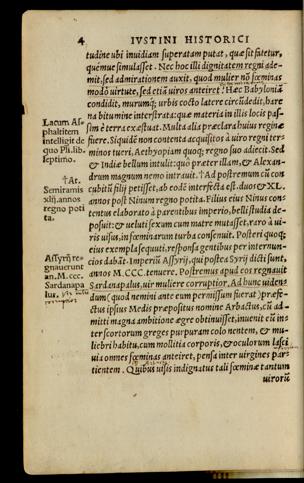 4 IVSTINI HISTORICI
tudine ubi inuidiam superatam putat, quæ sit fatetur,
quémue simulasset. Nec hoc illi dignitatem regni ade-
mit, sed admirationem auxit. quod mulier nõ fœminas
modò uirtute, sed etiã uiros anteiret. Hæc Babyloniã
condidit, murumq; urbis cocto latere circũdedit, hare
na bitumine interstrata: quæ materia in illis locis pas-
sim è terra exæstuat. Multa alia præclara huius reginæ
fuere. Siquidẽ non contenta acquisitos à uiro regni ter-
minos tueri, Aethyopiam quoq; regno suo adiecit. Sed
& Indiæ bellum intulit: quò præter illam, & Alexan-
drum magnum nemo intrauit. †Ad postremum cũ con
cubitũ filij petijsset, ab eodẽ interfecta est. duos & XL.
annos post Ninum regno potita. Filius eius Ninus con-
tentus elaborato à parentibus imperio, belli studia de-
posuit: & ueluti sexum cum matre mutasset, raro à ui-
ris uisus, in fœminarum turba consenuit. Posteri quoq;
eius exempla sequuti, responsa gentibus per internun-
cios dabãt. Imperiũ Assyrij, qui postea Syrij dicti sunt,
annos M. CCC. tenuere. Postremus apud eos regnauit
Sardanapalus, uir muliere corruptior. Ad hunc uiden-
dam (quod nemini ante eum permissum fuerat) præfe-
ctus ipsius Medis præpositus nomine Arbactus, cũ ad-
mitti magna ambitione ægre obtinuisset, inuenit eũ in-
ter scortorum greges purpuram colo nentem, & mu-
liebri habitu, cum mollitia corporis, & oculorum lasci
uia omnes fœminas anteiret, pensa inter uirgines par-
tientem. Quibus uisis indignatus tali fœminæ tantum
uirorũ
Lacum As-
phaltitem
intelligit de
quo Pli. lib.
septimo.
†At.
Semiramis
xlij. annos
regno poti
ta.
Assyrij re-
gnauerunt
an. M. ccc.
Sardanapa
lus.